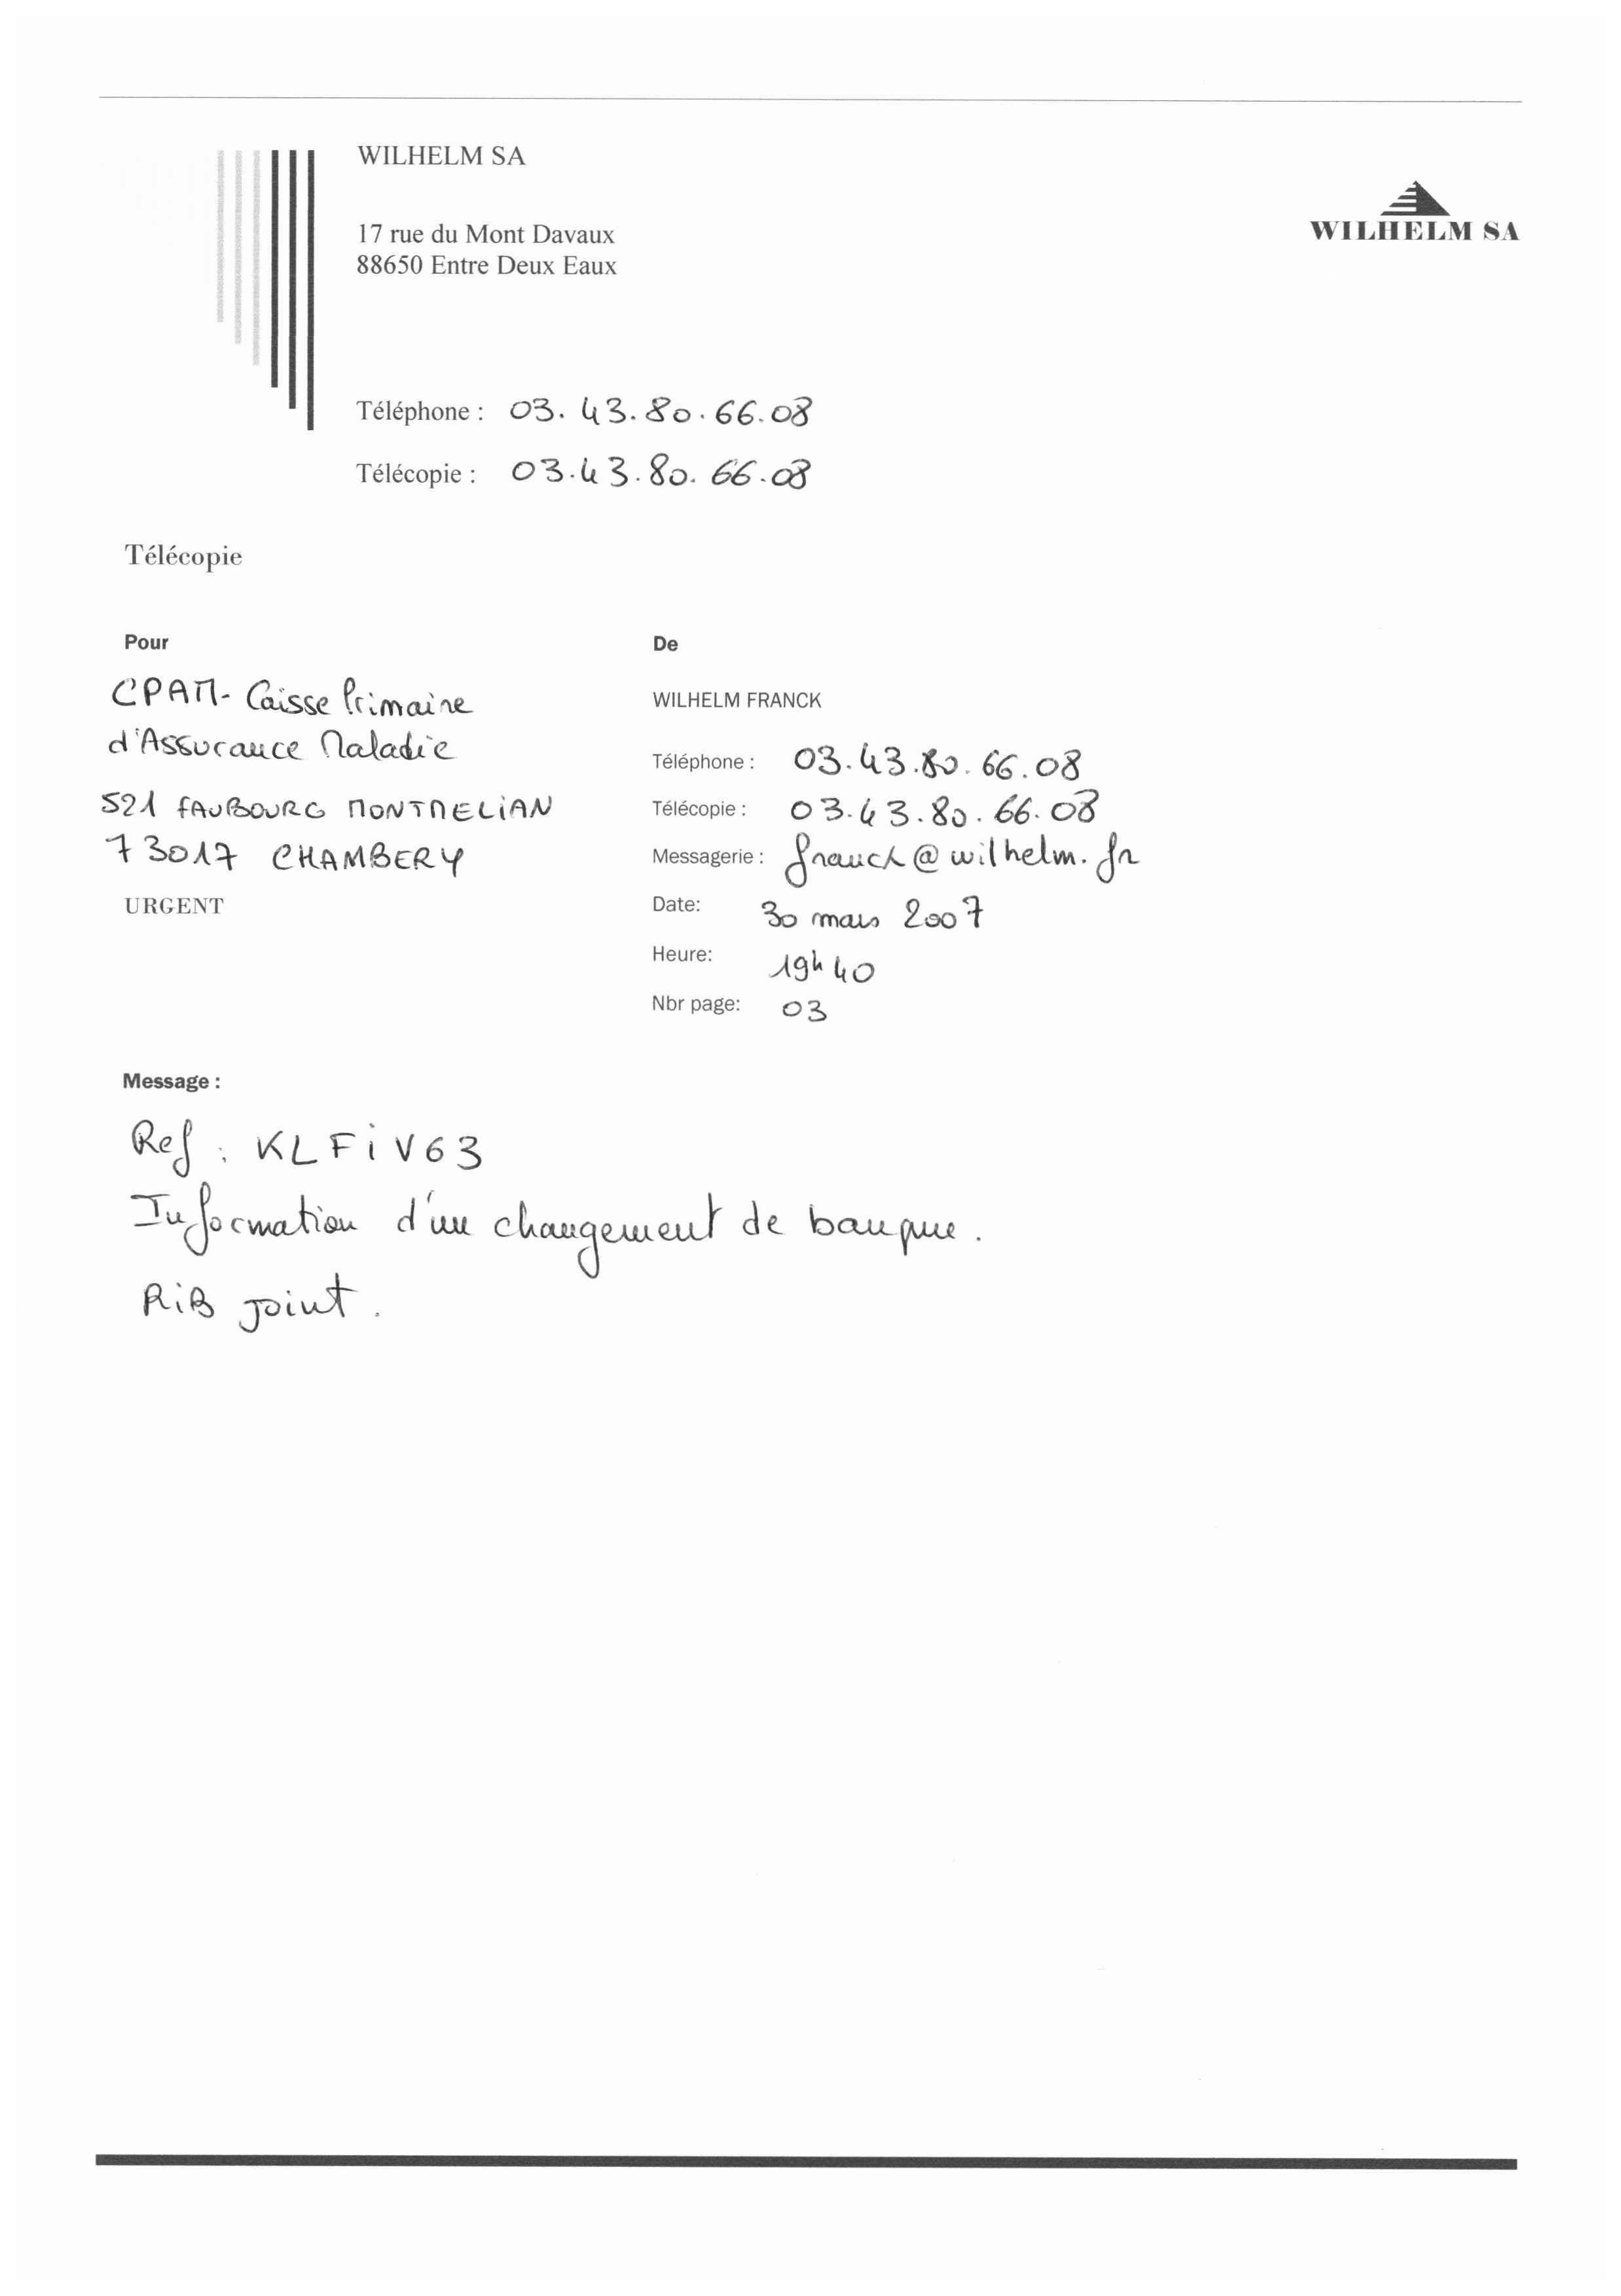 WILHELM SA
17 rue du Mont Davaux
88650 Entre Deux Eaux
WILHELM SA
Téléphone : 03.43.80.66.08
Télécopie : 03.43.80.66.08
Télécopie
Pour
CPAM - Caisse Primaire
d'Assurance Maladie
521 FAUBOURG MONTMELIAN
73017 CHAMBERY
URGENT
De
WILHELM FRANCK
Téléphone : 03.43.80.66.08
Télécopie : 03.43.80.66.08
Messagerie : franck@wilhelm.fr
Date: 30 mars 2007
Heure: 19h40
Nbr page: 03
Message :
Ref : KLFiV63
Information d'un changement de banque.
RiB joint.